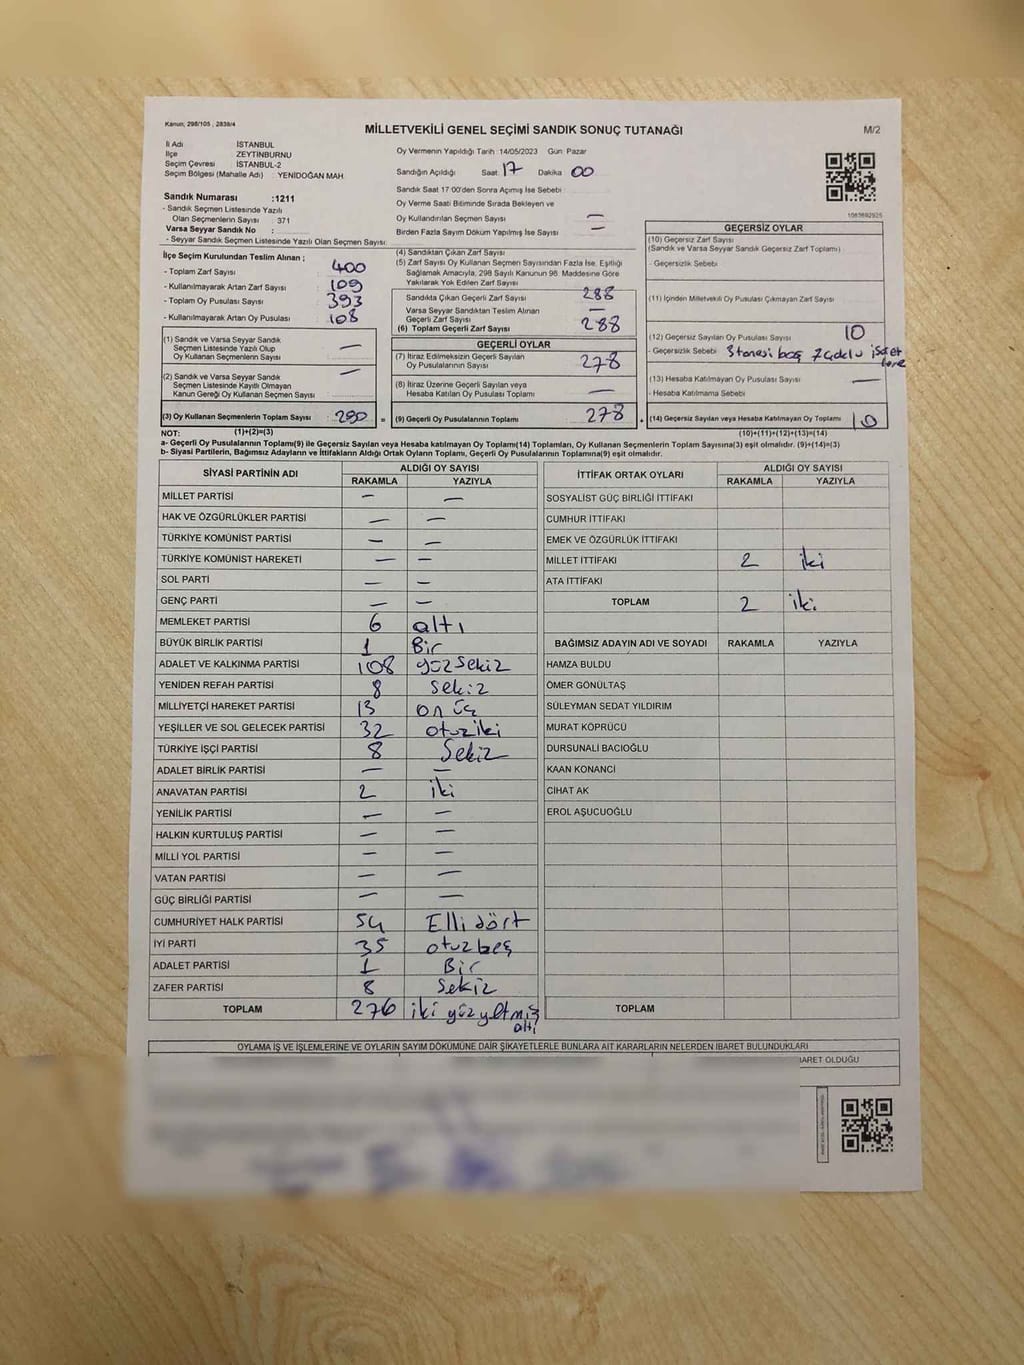 Kanun; 298/105 , 2839/4
MİLLETVEKİLİ GENEL SEÇİMİ SANDIK SONUÇ TUTANAĞI
M/2
İl Adı : İSTANBUL
İlçe : ZEYTİNBURNU
Seçim Çevresi : İSTANBUL-2
Seçim Bölgesi (Mahalle Adı) : YENİDOĞAN MAH.
Oy Vermenin Yapıldığı Tarih :14/05/2023 Gün: Pazar
Sandığın Açıldığı Saat: 17 Dakika 00
Sandık Saat 17:00'den Sonra Açımış İse Sebebi
Oy Verme Saati Bitiminde Sırada Bekleyen ve
Oy Kullandırılan Seçmen Sayısı —
Birden Fazla Sayım Döküm Yapılmış İse Sayısı —
Sandık Numarası :1211
- Sandık Seçmen Listesinde Yazılı
Olan Seçmenlerin Sayısı : 371
Varsa Seyyar Sandık No :
- Seyyar Sandık Seçmen Listesinde Yazılı Olan Seçmen Sayısı:
İlçe Seçim Kurulundan Teslim Alınan ;
- Toplam Zarf Sayısı : 400
- Kullanılmayarak Artan Zarf Sayısı : 109
- Toplam Oy Pusulası Sayısı : 393
- Kullanılmayarak Artan Oy Pusulası : 108
(1) Sandık ve Varsa Seyyar Sandık
Seçmen Listesinde Yazılı Olup
Oy Kullanan Seçmenlerin Sayısı —
(2) Sandık ve Varsa Seyyar Sandık
Seçmen Listesinde Kayıtlı Olmayan
Kanun Gereği Oy Kullanan Seçmen Sayısı —
(3) Oy Kullanan Seçmenlerin Toplam Sayısı 290
(1)+(2)=(3)
(4) Sandıktan Çıkan Zarf Sayısı
(5) Zarf Sayısı Oy Kullanan Seçmen Sayısından Fazla İse, Eşitliği
Sağlamak Amacıyla, 298 Sayılı Kanunun 98. Maddesine Göre
Yakılarak Yok Edilen Zarf Sayısı
Sandıkta Çıkan Geçerli Zarf Sayısı 288
Varsa Seyyar Sandıktan Teslim Alınan
Geçerli Zarf Sayısı —
(6) Toplam Geçerli Zarf Sayısı 288
GEÇERLİ OYLAR
(7) İtiraz Edilmeksizin Geçerli Sayılan
Oy Pusulasının Sayısı 278
(8) İtiraz Üzerine Geçerli Sayılan veya
Hesaba Katılan Oy Pusulası Toplamı —
= (9) Geçerli Oy Pusulalarının Toplamı 278
1083692925
GEÇERSİZ OYLAR
(10) Geçersiz Zarf Sayısı
(Sandık ve Varsa Seyyar Sandık Geçersiz Zarf Toplamı)
- Geçersizlik Sebebi
(11) İçinden Milletvekili Oy Pusulası Çıkmayan Zarf Sayısı
(12) Geçersiz Sayılan Oy Pusulası Sayısı 10
- Geçersizlik Sebebi 3 tanesi boş 7 çoklu işaret
(13) Hesaba Katılmayan Oy Pusulası Sayısı —
- Hesaba Katılmama Sebebi
+ (14) Geçersiz Sayılan veya Hesaba Katılmayan Oy Toplamı 10
(10)+(11)+(12)+(13)=(14)
NOT:
a- Geçerli Oy Pusulalarının Toplamı(9) ile Geçersiz Sayılan veya Hesaba katılmayan Oy Toplamı(14) Toplamları, Oy Kullanan Seçmenlerin Toplam Sayısına(3) eşit olmalıdır. (9)+(14)=(3)
b- Siyasi Partilerin, Bağımsız Adayların ve İttifakların Aldığı Ortak Oyların Toplamı, Geçerli Oy Pusulalarının Toplamına(9) eşit olmalıdır.
SİYASİ PARTİNİN ADI ALDIĞI OY SAYISI
RAKAMLA YAZIYLA
MİLLET PARTİSİ — —
HAK VE ÖZGÜRLÜKLER PARTİSİ — —
TÜRKİYE KOMÜNİST PARTİSİ — —
TÜRKİYE KOMÜNİST HAREKETİ — —
SOL PARTİ — —
GENÇ PARTİ — —
MEMLEKET PARTİSİ 6 altı
BÜYÜK BİRLİK PARTİSİ 1 Bir
ADALET VE KALKINMA PARTİSİ 108 yüz sekiz
YENİDEN REFAH PARTİSİ 8 sekiz
MİLLİYETÇİ HAREKET PARTİSİ 13 on üç
YEŞİLLER VE SOL GELECEK PARTİSİ 32 otuz iki
TÜRKİYE İŞÇİ PARTİSİ 8 Sekiz
ADALET BİRLİK PARTİSİ — —
ANAVATAN PARTİSİ 2 iki
YENİLİK PARTİSİ — —
HALKIN KURTULUŞ PARTİSİ — —
MİLLİ YOL PARTİSİ — —
VATAN PARTİSİ — —
GÜÇ BİRLİĞİ PARTİSİ — —
CUMHURİYET HALK PARTİSİ 54 Elli dört
İYİ PARTİ 35 otuz beş
ADALET PARTİSİ 1 Bir
ZAFER PARTİSİ 8 Sekiz
TOPLAM 276 iki yüz yetmiş
altı
İTTİFAK ORTAK OYLARI ALDIĞI OY SAYISI
RAKAMLA YAZIYLA
SOSYALİST GÜÇ BİRLİĞİ İTTİFAKI
CUMHUR İTTİFAKI
EMEK VE ÖZGÜRLÜK İTTİFAKI
MİLLET İTTİFAKI 2 iki
ATA İTTİFAKI
TOPLAM 2 iki
BAĞIMSIZ ADAYIN ADI VE SOYADI RAKAMLA YAZIYLA
HAMZA BULDU
ÖMER GÖNÜLTAŞ
SÜLEYMAN SEDAT YILDIRIM
MURAT KÖPRÜCÜ
DURSUNALİ BACIOĞLU
KAAN KONANCİ
CİHAT AK
EROL AŞUCUOĞLU
TOPLAM
OYLAMA İŞ VE İŞLEMLERİNE VE OYLARIN SAYIM DÖKÜMÜNE DAİR ŞİKAYETLERLE BUNLARA AİT KARARLARIN NELERDEN İBARET BULUNDUKLARI
İBARET OLDUĞU